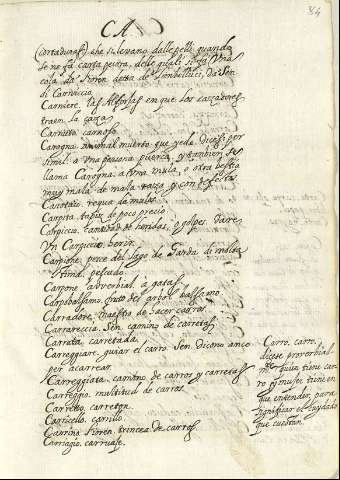 84
CA
(cortaduras) che si levano dalle pelli quando
se ne fà carta pecora, delle quali si fà una
cosa da Fioren. detta de Limbellucci, da Sen.
di Carniccio
Carniere, las Alforjas en que los cazadores
traen la caza
Carnuto, carnoso
Carogna, animal muerto que yede. dicesi por
simil. a una persona puerca, y tambien se
llama Carogna, a una mula, o otra bestia
muy mala, de mala raza, y con defectos
Carotaio, requa de mulos
Carpita, tapiz de poco precio
Carpiccio, cantidad de heridas, o golpes, dare
Un Carpiccio, herir
Carpione, pece del lago de Garda di molta
stima, pescado
Carpone, adverbial. a gatas
Carpobalsamo, fruto del arbol balsamo
Carradore, maestro de hacer carros
Carrareccia, Sen. camino de carretas
Carrata, carretada
Carreggiare, guiar el carro Sen. dicono anco
per acarrear
Carreggiata, camino de carros y carretas
Carreggio, multitud de carros
Carretto, carreton
Carricello, carrillo
Carrino, Fioren. trincea de carros
Carriagio, carruaje
Carro, carro,
dicese proverbial-
mte. quien tiene car-
ro y mujer, tiene en
que entender, para
significar el cuydado
que cuestan